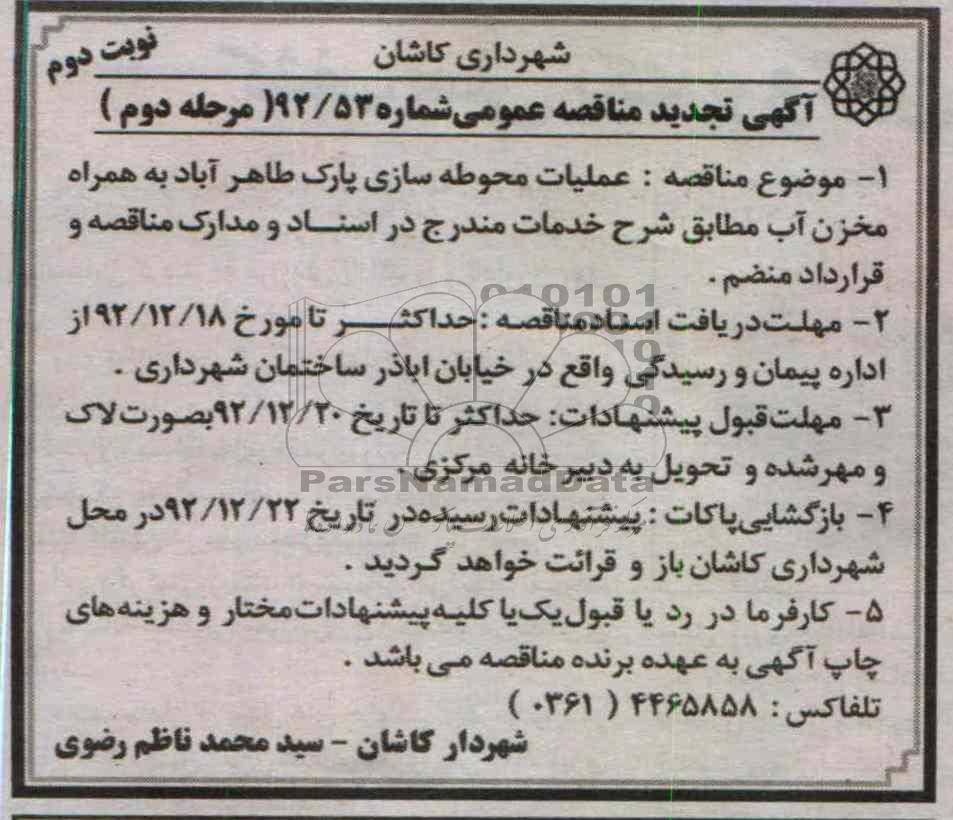 نوبت دوم
شهرداری کاشان
آگهی تجدید مناقصه عمومی شماره ۹۲/۵۳( مرحله دوم )
۱- موضوع مناقصه : عملیات محوطه سازی پارک طاهر آباد به همراه
مخزن آب مطابق شرح خدمات مندرج در اسناد و مدارک مناقصه و
قرارداد منضم .
۲- مهلت دریافت اسناد مناقصه :حداکثر تا مورخ ۹۲/۱۲/۱۸ از
اداره پیمان و رسیدگی واقع در خیابان اباذر ساختمان شهرداری .
۳- مهلت قبول پیشنهادات: حداکثر تا تاریخ ۹۲/۱۲/۲۰ بصورت لاک
و مهر شده و تحویل به دبیرخانه مرکزی .
۴- بازگشایی پاکات : پیشنهادات رسیده در تاریخ ۹۲/۱۲/۲۲ در محل
شهرداری کاشان باز و قرائت خواهد گردید .
۵- کارفرما در رد یا قبول یک یا کلیه پیشنهادات مختار و هزینه های
چاپ آگهی به عهده برنده مناقصه می باشد .
تلفاکس : ۴۴۶۵۸۵۸ ( ۰۳۶۱ )
شهردار کاشان - سید محمد ناظم رضوی
ParsNamadData